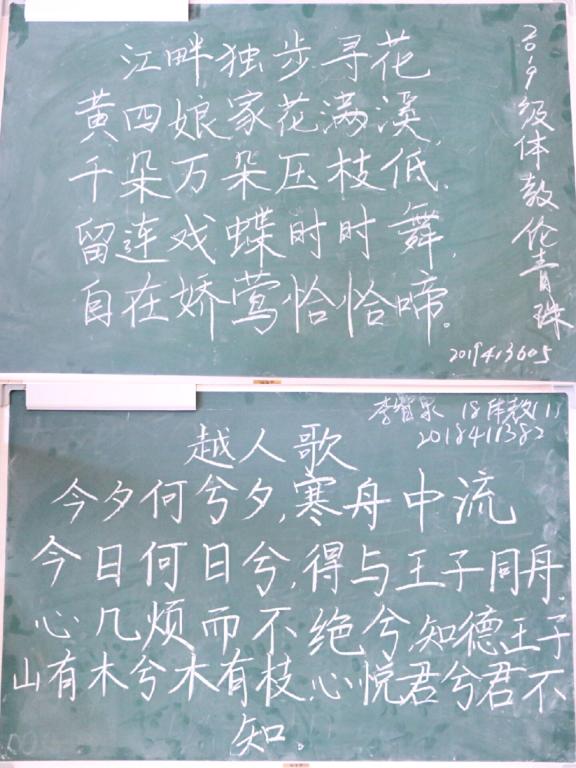 江畔独步寻花
黄四娘家花满溪,
千朵万朵压枝低.
留连戏蝶时时舞,
自在娇莺恰恰啼。
2019级体教伦青珠
2019413605
李智泉 18体教(1)
2018411382
越人歌
今夕何兮夕,寒舟中流
今日何日兮,得与王子同舟.
心几烦而不绝兮,知德王子
山有木兮木有枝,心悦君兮君不
知。